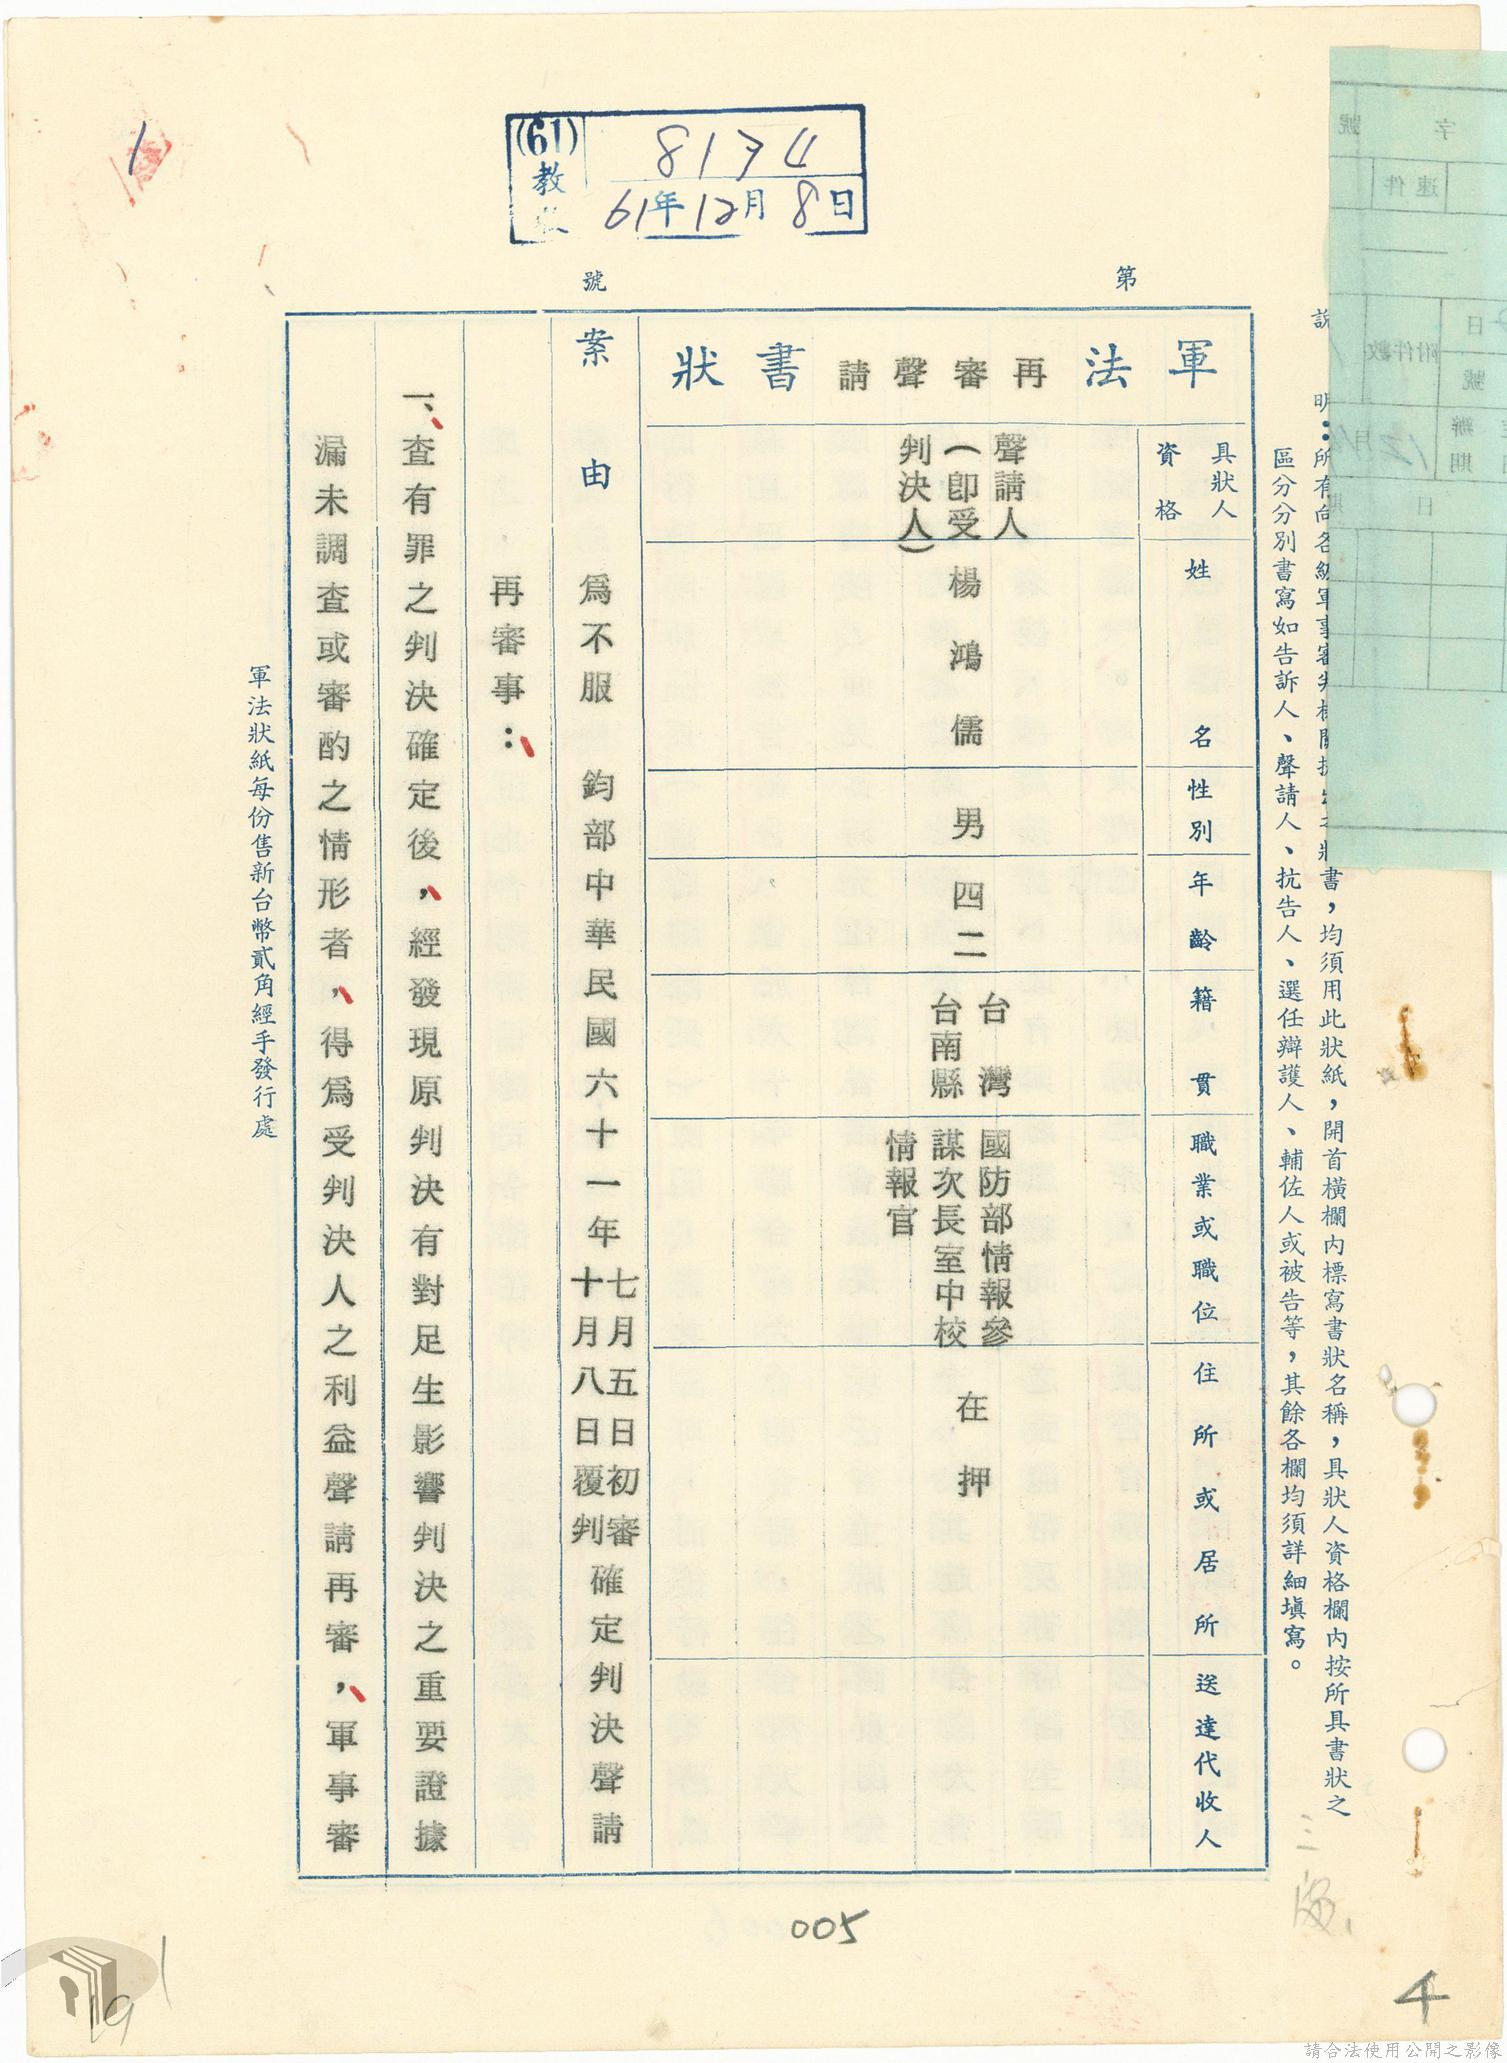 (61)
教
8134
61年12月8日
1
第 號
說明：所有向各級軍事審判機關提出之狀書，均須用此狀紙，開首橫欄內標寫書狀名稱，具狀人資格欄內按所具書狀之
區分分別書寫如告訴人、聲請人、抗告人、選任辯護人、輔佐人或被告等，其餘各欄均須詳細填寫。
軍法再審聲請書狀
具狀人
資格
姓名
性別
年齡
籍貫
職業或職位
住所或居所
送達代收人
聲請人
（即受
判決人）
楊鴻儒
男
四二
台灣
台南縣
國防部情報參
謀次長室中校
情報官
在押
案由
為不服 鈞部中華民國六十一年
七月五日初審
十月八日覆判
確定判決聲請
再審事：
一、查有罪之判決確定後，經發現原判決有對足生影響判決之重要證據
漏未調查或審酌之情形者，得為受判決人之利益聲請再審，軍事審
軍法狀紙每份售新台幣貳角經手發行處
字 號
速件
附件數
日
號
辦
期
月
日 期
005
三
4
19
請合法使用公開之影像